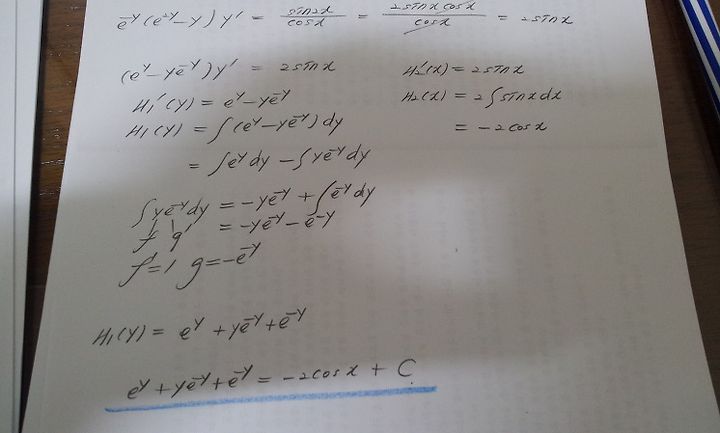 e^{-y}(e^{2y}-y)y' = \frac{sin2x}{cosx} = \frac{2sinxcosx}{cosx} = 2sinx
(e^y-ye^{-y})y' = 2sinx H₂'(x)=2sinx
H₁'(y) = e^y-ye^{-y} H₂(x) = 2∫sinxdx
H₁(y) = ∫(e^y-ye^{-y})dy = -2cosx
= ∫e^y dy - ∫ye^{-y}dy
∫ye^{-y}dy = -ye^{-y} + ∫e^{-y}dy
f g' = -ye^{-y} - e^{-y}
f'=1 g=-e^{-y}
H₁(y) = e^y + ye^{-y} + e^{-y}
e^y + ye^{-y} + e^{-y} = -2cosx + C